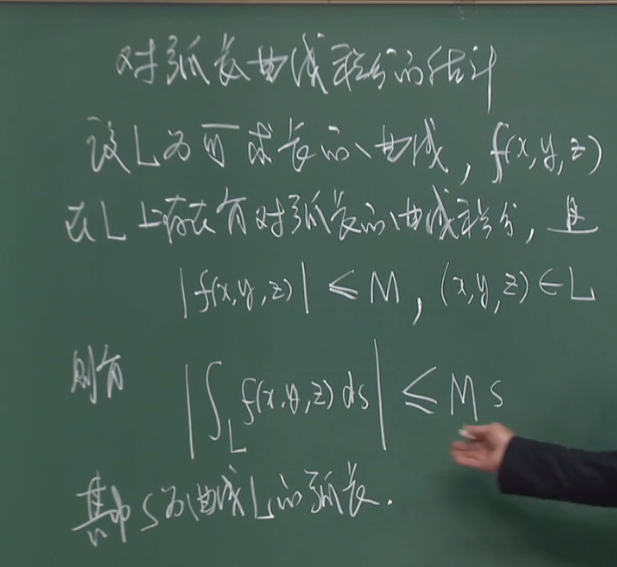 对弧长曲线积分的估计
设L为可求长的曲线, f(x,y,z)
在L上存在有对弧长的曲线积分, 且
|f(x,y,z)| ≤ M, (x,y,z)∈L
则有 |∫_L f(x,y,z)ds| ≤ M s
其中 s为曲线L的弧长.